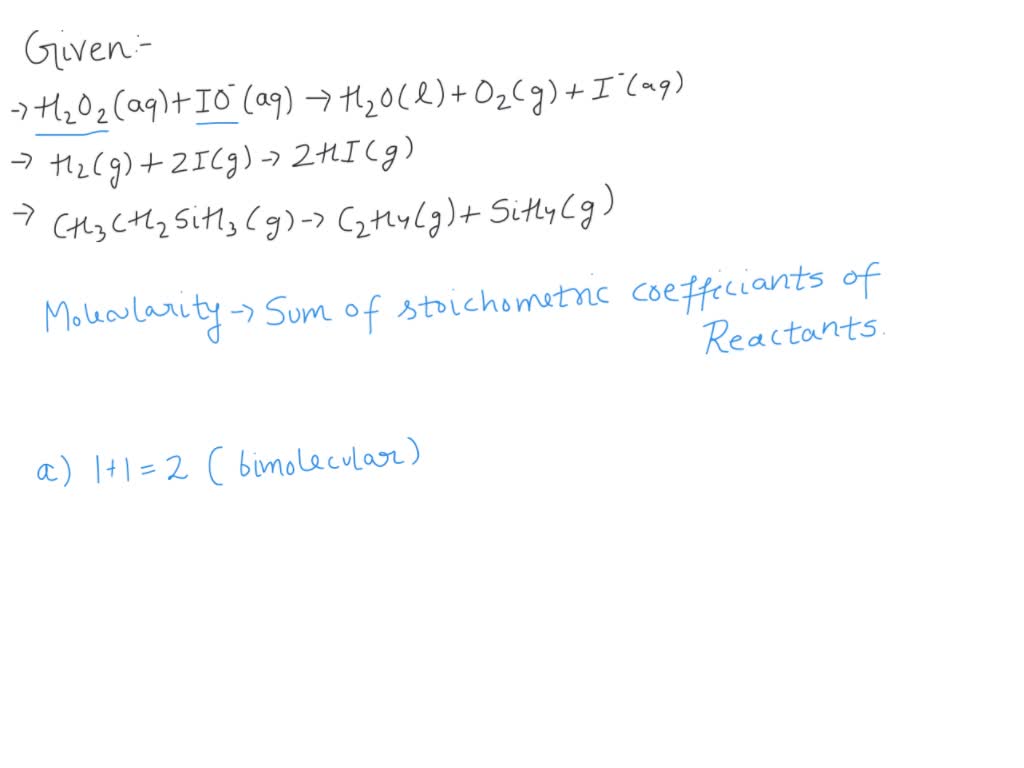 Given:-
→ H₂O₂(aq) + IO⁻(aq) → H₂O(l) + O₂(g) + I⁻(aq)
→ H₂(g) + 2I(g) → 2HI(g)
→ CH₃CH₂SiH₃(g) → C₂H₄(g) + SiH₄(g)
Molecularity → Sum of stoichometric coefficiants of
Reactants.
a) 1+1=2 (bimolecular)